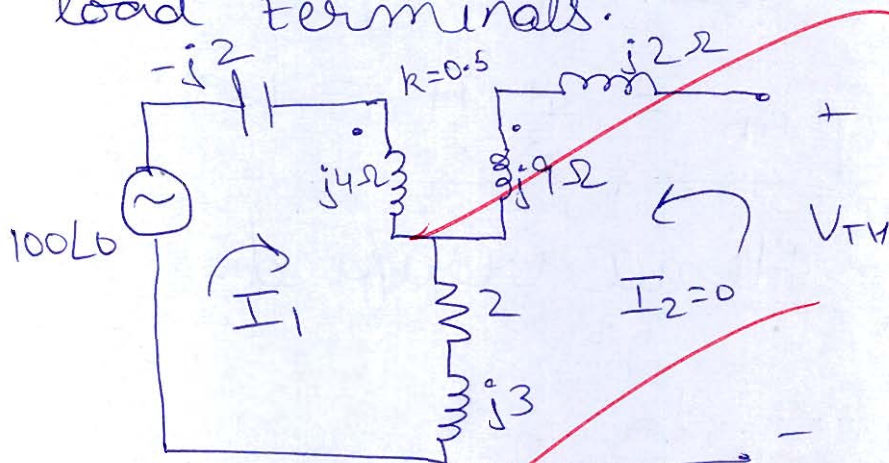 load terminals.
-j2 k=0.5 j2Ω
j4Ω j9Ω +
100∠0 I₁ I₂=0 V_TH
2
j3 -